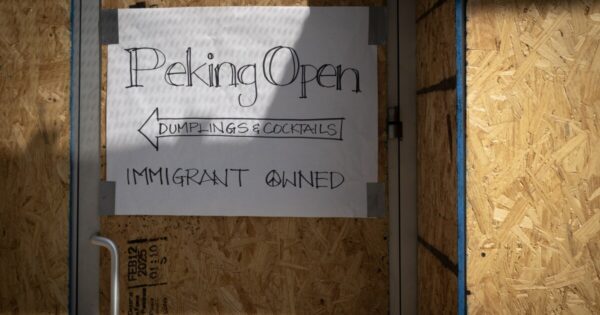 Peking Open
DUMPLINGS & COCKTAILS
IMMIGRANT OWNED
FEB12
2025
01:10